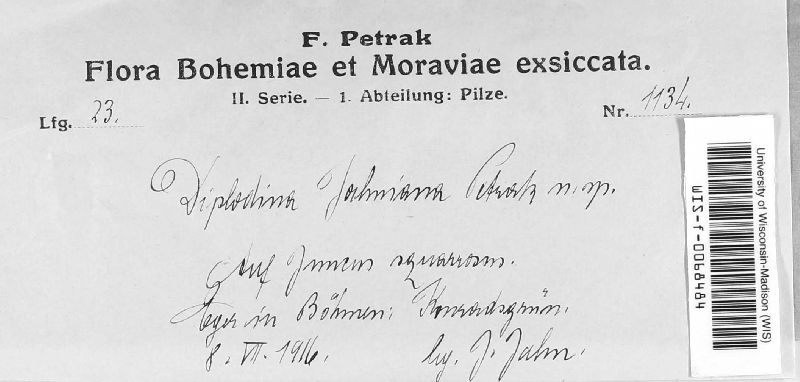 F. Petrak
Flora Bohemiae et Moraviae exsiccata.
II. Serie. — 1. Abteilung: Pilze.
Lfg. 23. Nr. 1134.
Diplodina Jahniana Petrak n. sp.
Auf Juncus squarrosus.
Eger in Böhmen: Konradsgrün.
8. VI. 1916. leg. J. Jahn.
University of Wisconsin-Madison (WIS)
WIS-f-0068484